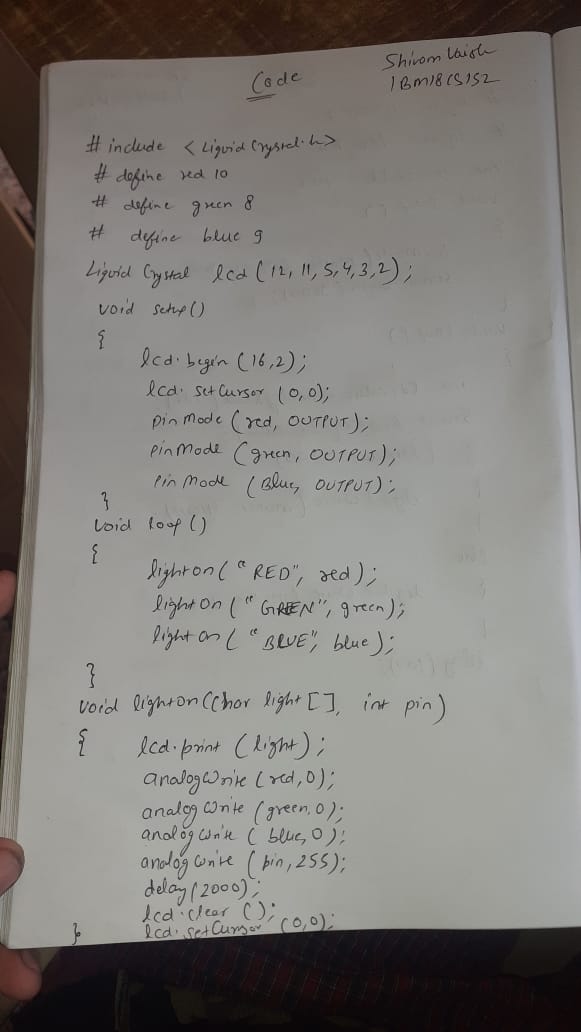 Code
Shivom Vaish
1BM18CS152
# include <LiquidCrystal.h>
# define red 10
# define green 8
# define blue 9
Liquid Crystal lcd (12, 11, 5, 4, 3, 2);
void setup()
{
lcd.begin (16,2);
lcd. setCursor (0,0);
pinMode (red, OUTPUT);
pinMode (green, OUTPUT);
PinMode (Blue, OUTPUT);
}
void loop ()
{
lighton ("RED", red);
lighton ("GREEN", green);
lighton ("BLUE", blue);
}
void lighton (char light [], int pin)
{ lcd.print (light);
analogWrite (red,0);
analogWrite (green,0);
analogWrite (blue,0);
analogWrite (pin,255);
delay (2000);
lcd.clear ();
} lcd. setCursor (0,0);